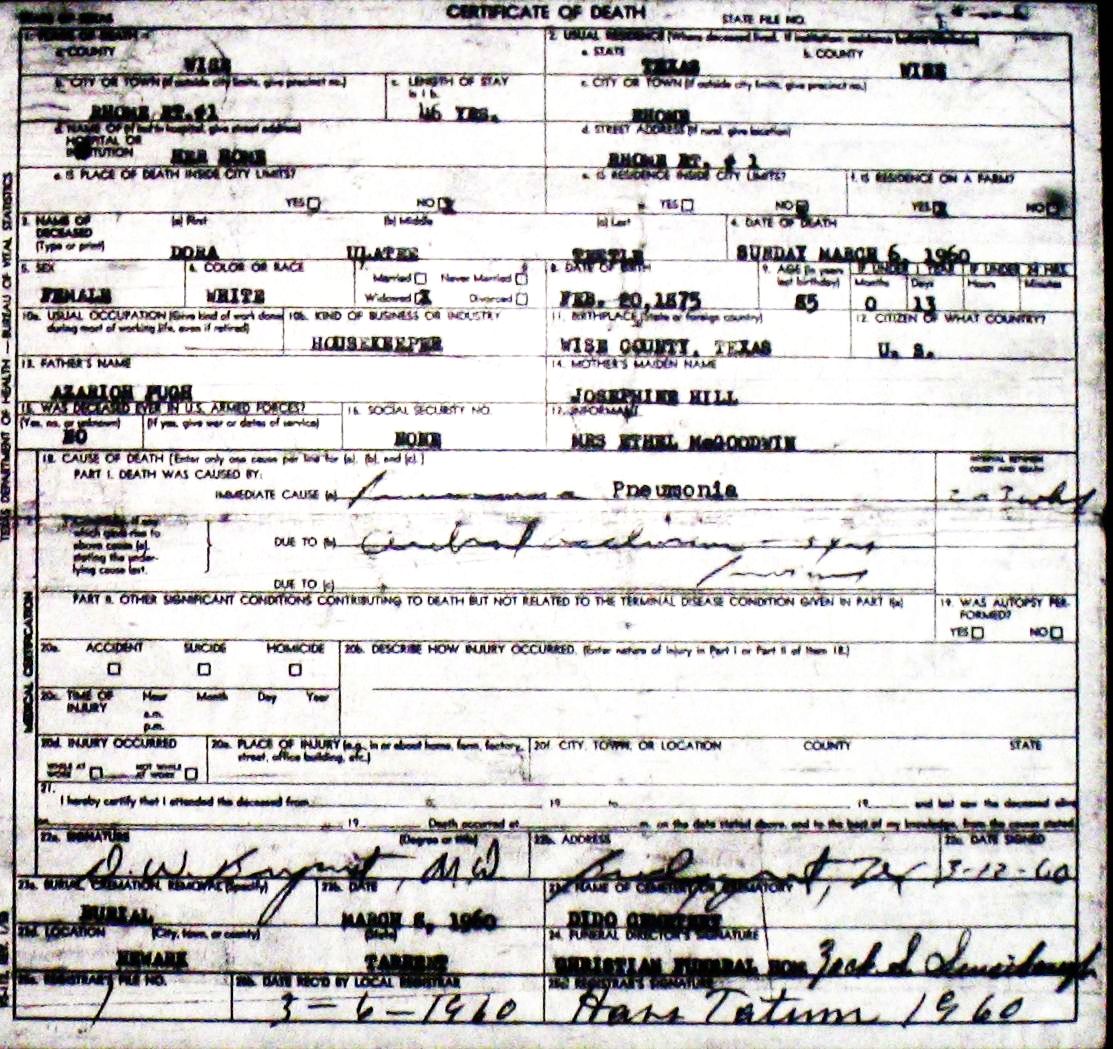 CERTIFICATE OF DEATH STATE FILE NO.
a. COUNTY
WISE
2. USUAL RESIDENCE (Where deceased lived. If institution: residence before admission)
a. STATE b. COUNTY
TEXAS WISE
b. CITY OR TOWN (If outside city limits, give precinct no.)
RHOME RT.#1
c. LENGTH OF STAY
in 1 b.
46 YRS.
c. CITY OR TOWN (If outside city limits, give precinct no.)
RHOME
d. NAME OF (If not in hospital, give street address)
HOSPITAL OR
INSTITUTION HER HOME
d. STREET ADDRESS (If rural, give location)
RHOME RT. # 1
e. IS PLACE OF DEATH INSIDE CITY LIMITS?
YES NO X
e. IS RESIDENCE INSIDE CITY LIMITS?
YES NO
f. IS RESIDENCE ON A FARM?
YES X NO
3. NAME OF
DECEASED
(Type or print)
(a) First (b) Middle (c) Last
DORA
4. DATE OF DEATH
SUNDAY MARCH 6, 1960
5. SEX
FEMALE
6. COLOR OR RACE
WHITE
7.
Married Never Married
Widowed X Divorced
8. DATE OF BIRTH
FEB. 20,1875
9. AGE (In years
last birthday)
85
IF UNDER 1 YEAR
Months Days
0 13
IF UNDER 24 HRS.
Hours Minutes
10a. USUAL OCCUPATION (Give kind of work done
during most of working life, even if retired)
10b. KIND OF BUSINESS OR INDUSTRY
HOUSEKEEPER
11. BIRTHPLACE (State or foreign country)
WISE COUNTY, TEXAS
12. CITIZEN OF WHAT COUNTRY?
U. S.
13. FATHER'S NAME
AZARIOH PUGH
14. MOTHER'S MAIDEN NAME
JOSEPHINE HILL
15. WAS DECEASED EVER IN U.S. ARMED FORCES?
(Yes, no, or unknown) (If yes, give war or dates of service)
NO
16. SOCIAL SECURITY NO.
NONE
17. INFORMANT
MRS ETHEL McGOODWIN
18. CAUSE OF DEATH [Enter only one cause per line for (a), (b), and (c).]
PART I. DEATH WAS CAUSED BY:
IMMEDIATE CAUSE (a) Pneumonia
INTERVAL BETWEEN
ONSET AND DEATH
Conditions, if any
which gave rise to
above cause (a),
stating the under-
lying cause last.
DUE TO (b)
DUE TO (c)
PART II. OTHER SIGNIFICANT CONDITIONS CONTRIBUTING TO DEATH BUT NOT RELATED TO THE TERMINAL DISEASE CONDITION GIVEN IN PART I(a)
19. WAS AUTOPSY PER-
FORMED?
YES NO
20a. ACCIDENT SUICIDE HOMICIDE
20b. DESCRIBE HOW INJURY OCCURRED. (Enter nature of injury in Part I or Part II of item 18.)
20c. TIME OF
INJURY
Hour Month Day Year
a.m.
p.m.
20d. INJURY OCCURRED
WHILE AT
WORK
NOT WHILE
AT WORK
20e. PLACE OF INJURY (e.g., in or about home, farm, factory,
street, office building, etc.)
20f. CITY, TOWN, OR LOCATION COUNTY STATE
21.
I hereby certify that I attended the deceased from 19 to 19 and last saw the deceased alive
19 Death occurred at m. on the date stated above, and to the best of my knowledge, from the causes stated
22a. SIGNATURE (Degree or title)
22b. ADDRESS
22c. DATE SIGNED
3-12-60
23a. BURIAL, CREMATION, REMOVAL (Specify)
BURIAL
23b. DATE
MARCH 8, 1960
23c. NAME OF CEMETERY OR CREMATORY
DIDO CEMETERY
23d. LOCATION (City, town, or county) (State)
NEWARK TARRENT
24. FUNERAL DIRECTOR'S SIGNATURE
CHRISTIAN FUNERAL HOM
25a. REGISTRAR'S FILE NO.
1
25b. DATE REC'D BY LOCAL REGISTRAR
3-6-1960
25c. REGISTRAR'S SIGNATURE
Hans Tatum 1960
TEXAS DEPARTMENT OF HEALTH — BUREAU OF VITAL STATISTICS
MEDICAL CERTIFICATION